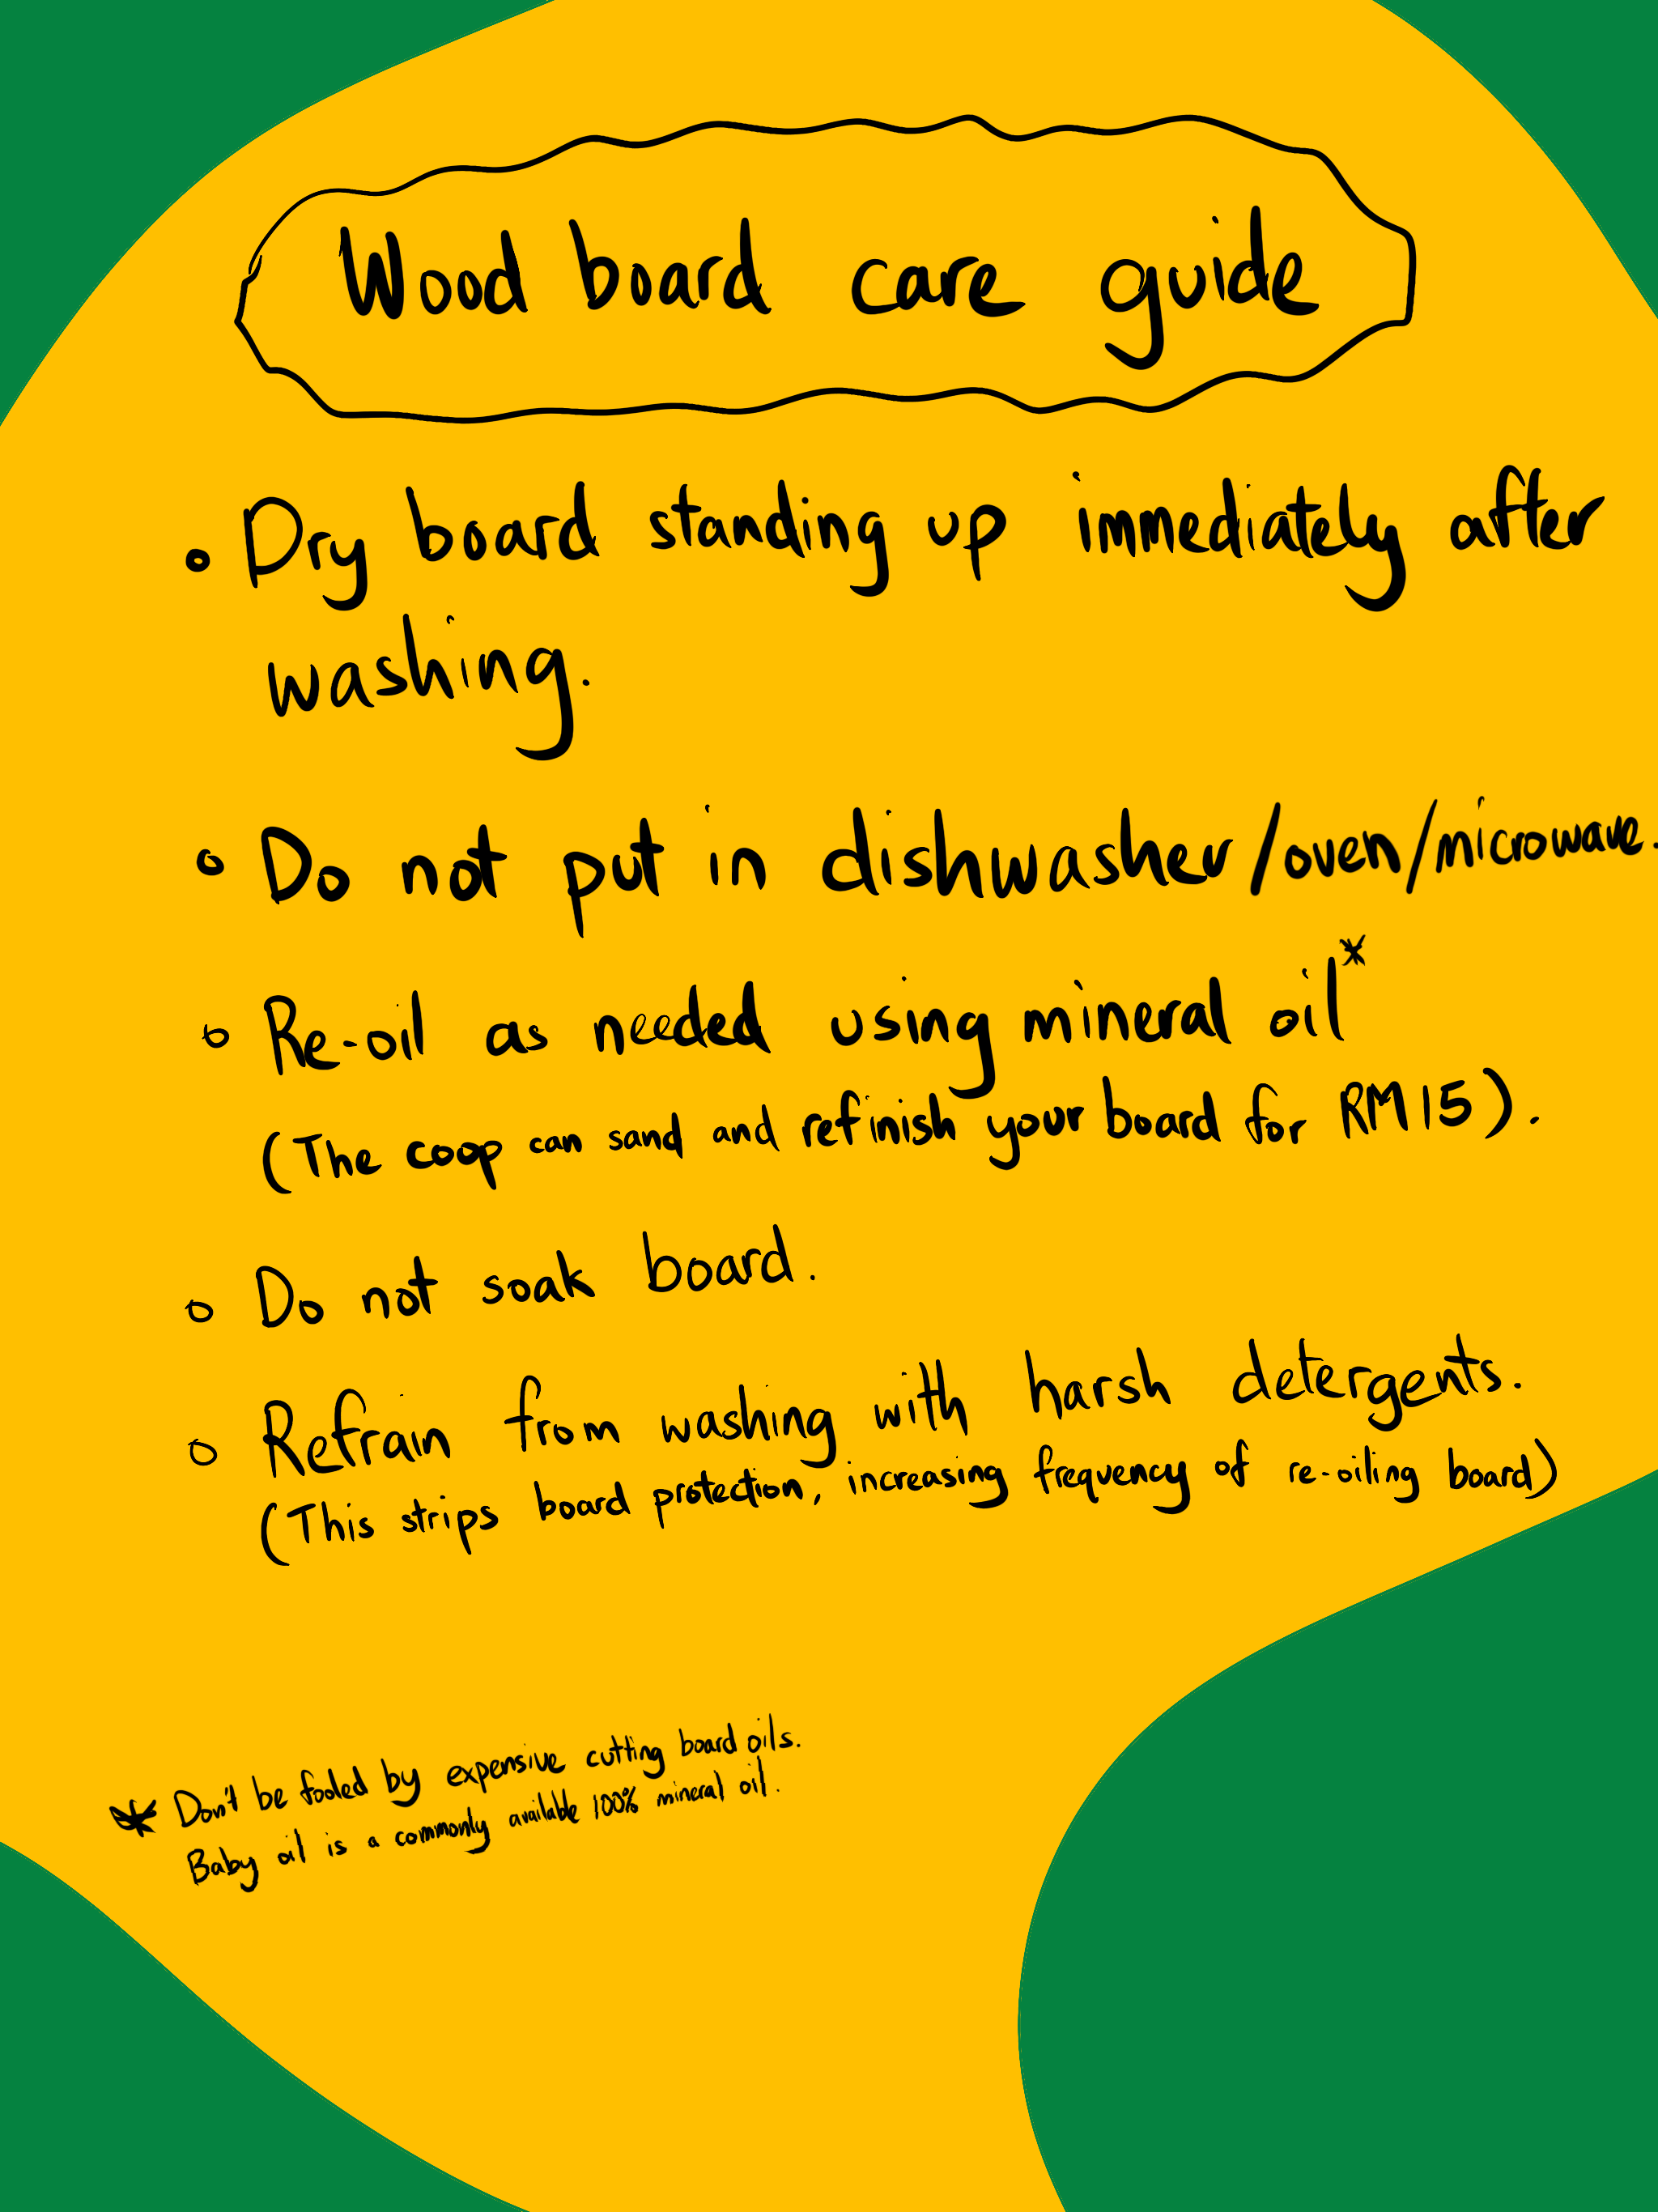 Wood board care guide
Dry board standing up immediately after
washing.
Do not put in dishwasher/oven/microwave.
Re-oil as needed using mineral oil*
(The coop can sand and refinish your board for RM15).
Do not soak board.
Refrain from washing with harsh detergents.
(This strips board protection, increasing frequency of re-oiling board)
* Don't be fooled by expensive cutting board oils.
Baby oil is a commonly available 100% mineral oil.